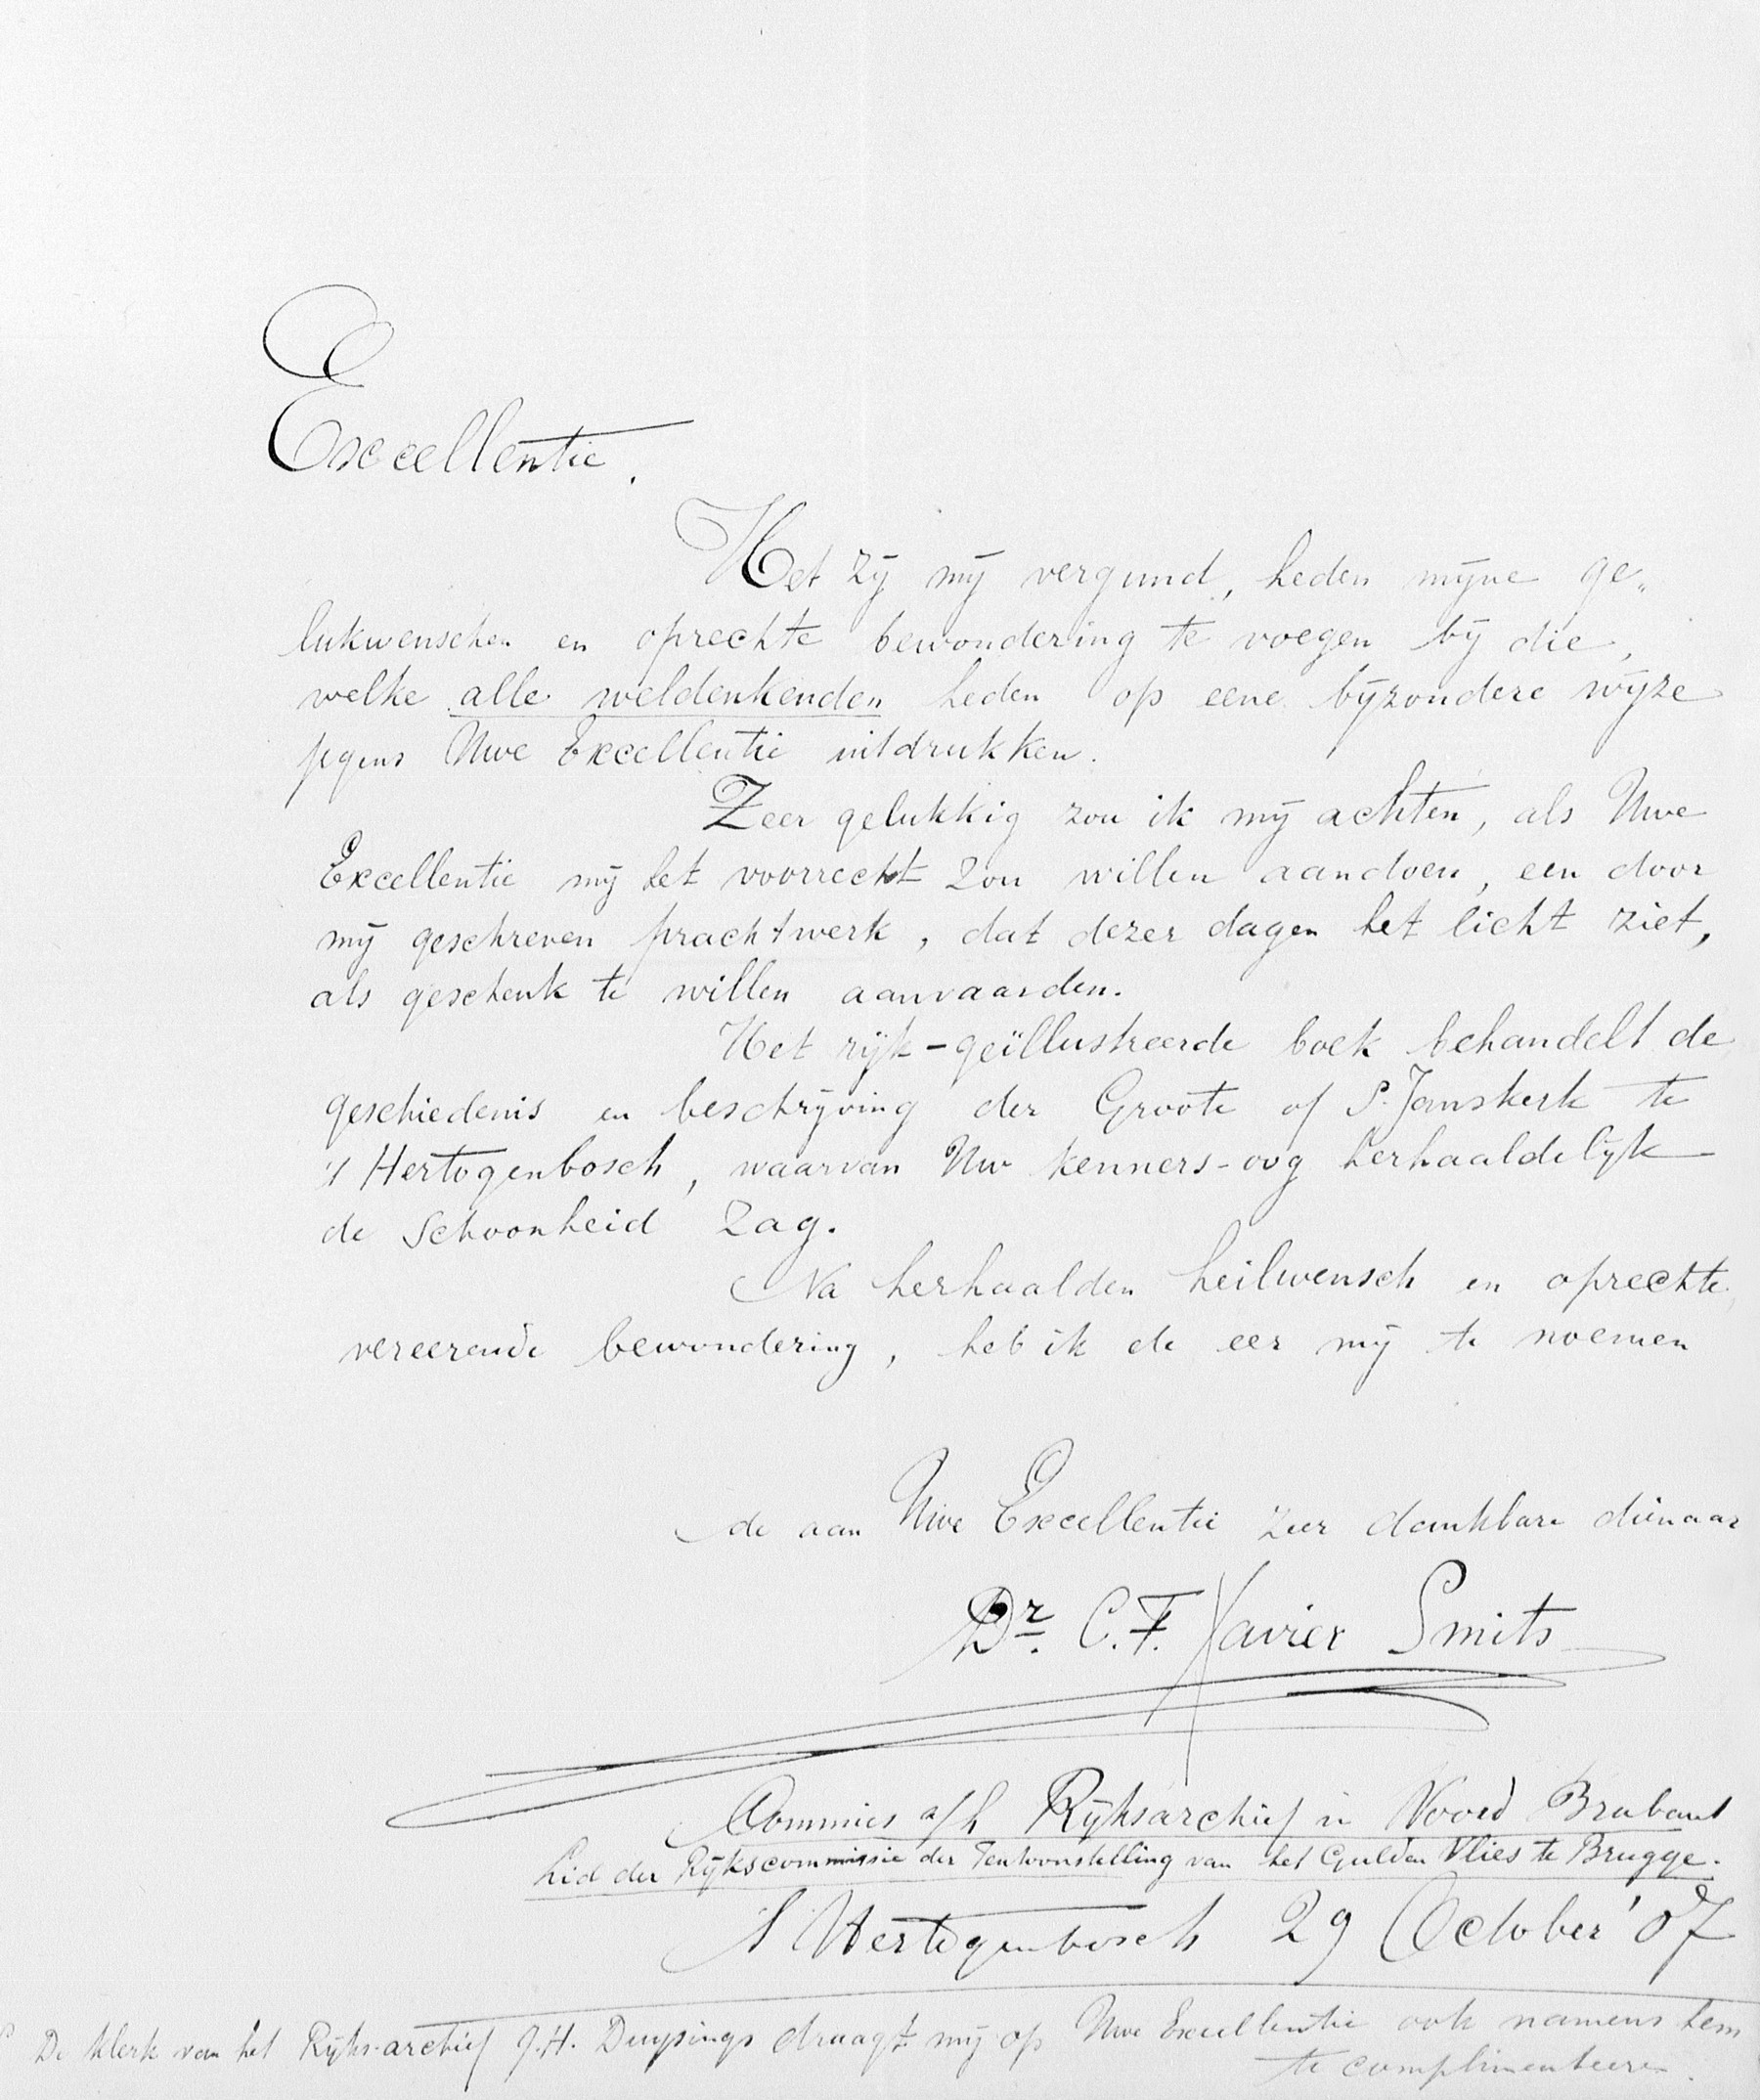 Excellentie.
Het zij mij vergund, heden mijne ge„
lukwenschen en oprechte bewondering te voegen bij die,
welke alle weldenkenden heden op eene bijzondere wijze
jegens Uwe Excellentie uitdrukken.
Zeer gelukkig zou ik mij achten, als Uwe
Excellentie mij het voorrecht zou willen aandoen, een door
mij geschreven prachtwerk, dat dezer dagen het licht ziet,
als geschenk te willen aanvaarden.
Het rijk-geïllustreerde boek behandelt de
geschiedenis en beschrijving der Groote of St. Janskerk te
's Hertogenbosch, waarvan Uw kenners-oog herhaaldelijk
de schoonheid zag.
Na herhaalden heilwensch en oprechte
vereerende bewondering, heb ik de eer mij te noemen
de aan Uwe Excellentie zeer dankbare dienaar
Dr. C. F. Xavier Smits
Commies a/h Rijksarchief in Noord Brabant
Lid der Rijkscommissie der Tentoonstelling van het Gulden Vlies te Brugge.
's Hertogenbosch 29 October '07
De klerk van het Rijks-archief J.H. Duysings draagt mij op Uwe Excellentie ook namens hem
te complimenteeren.